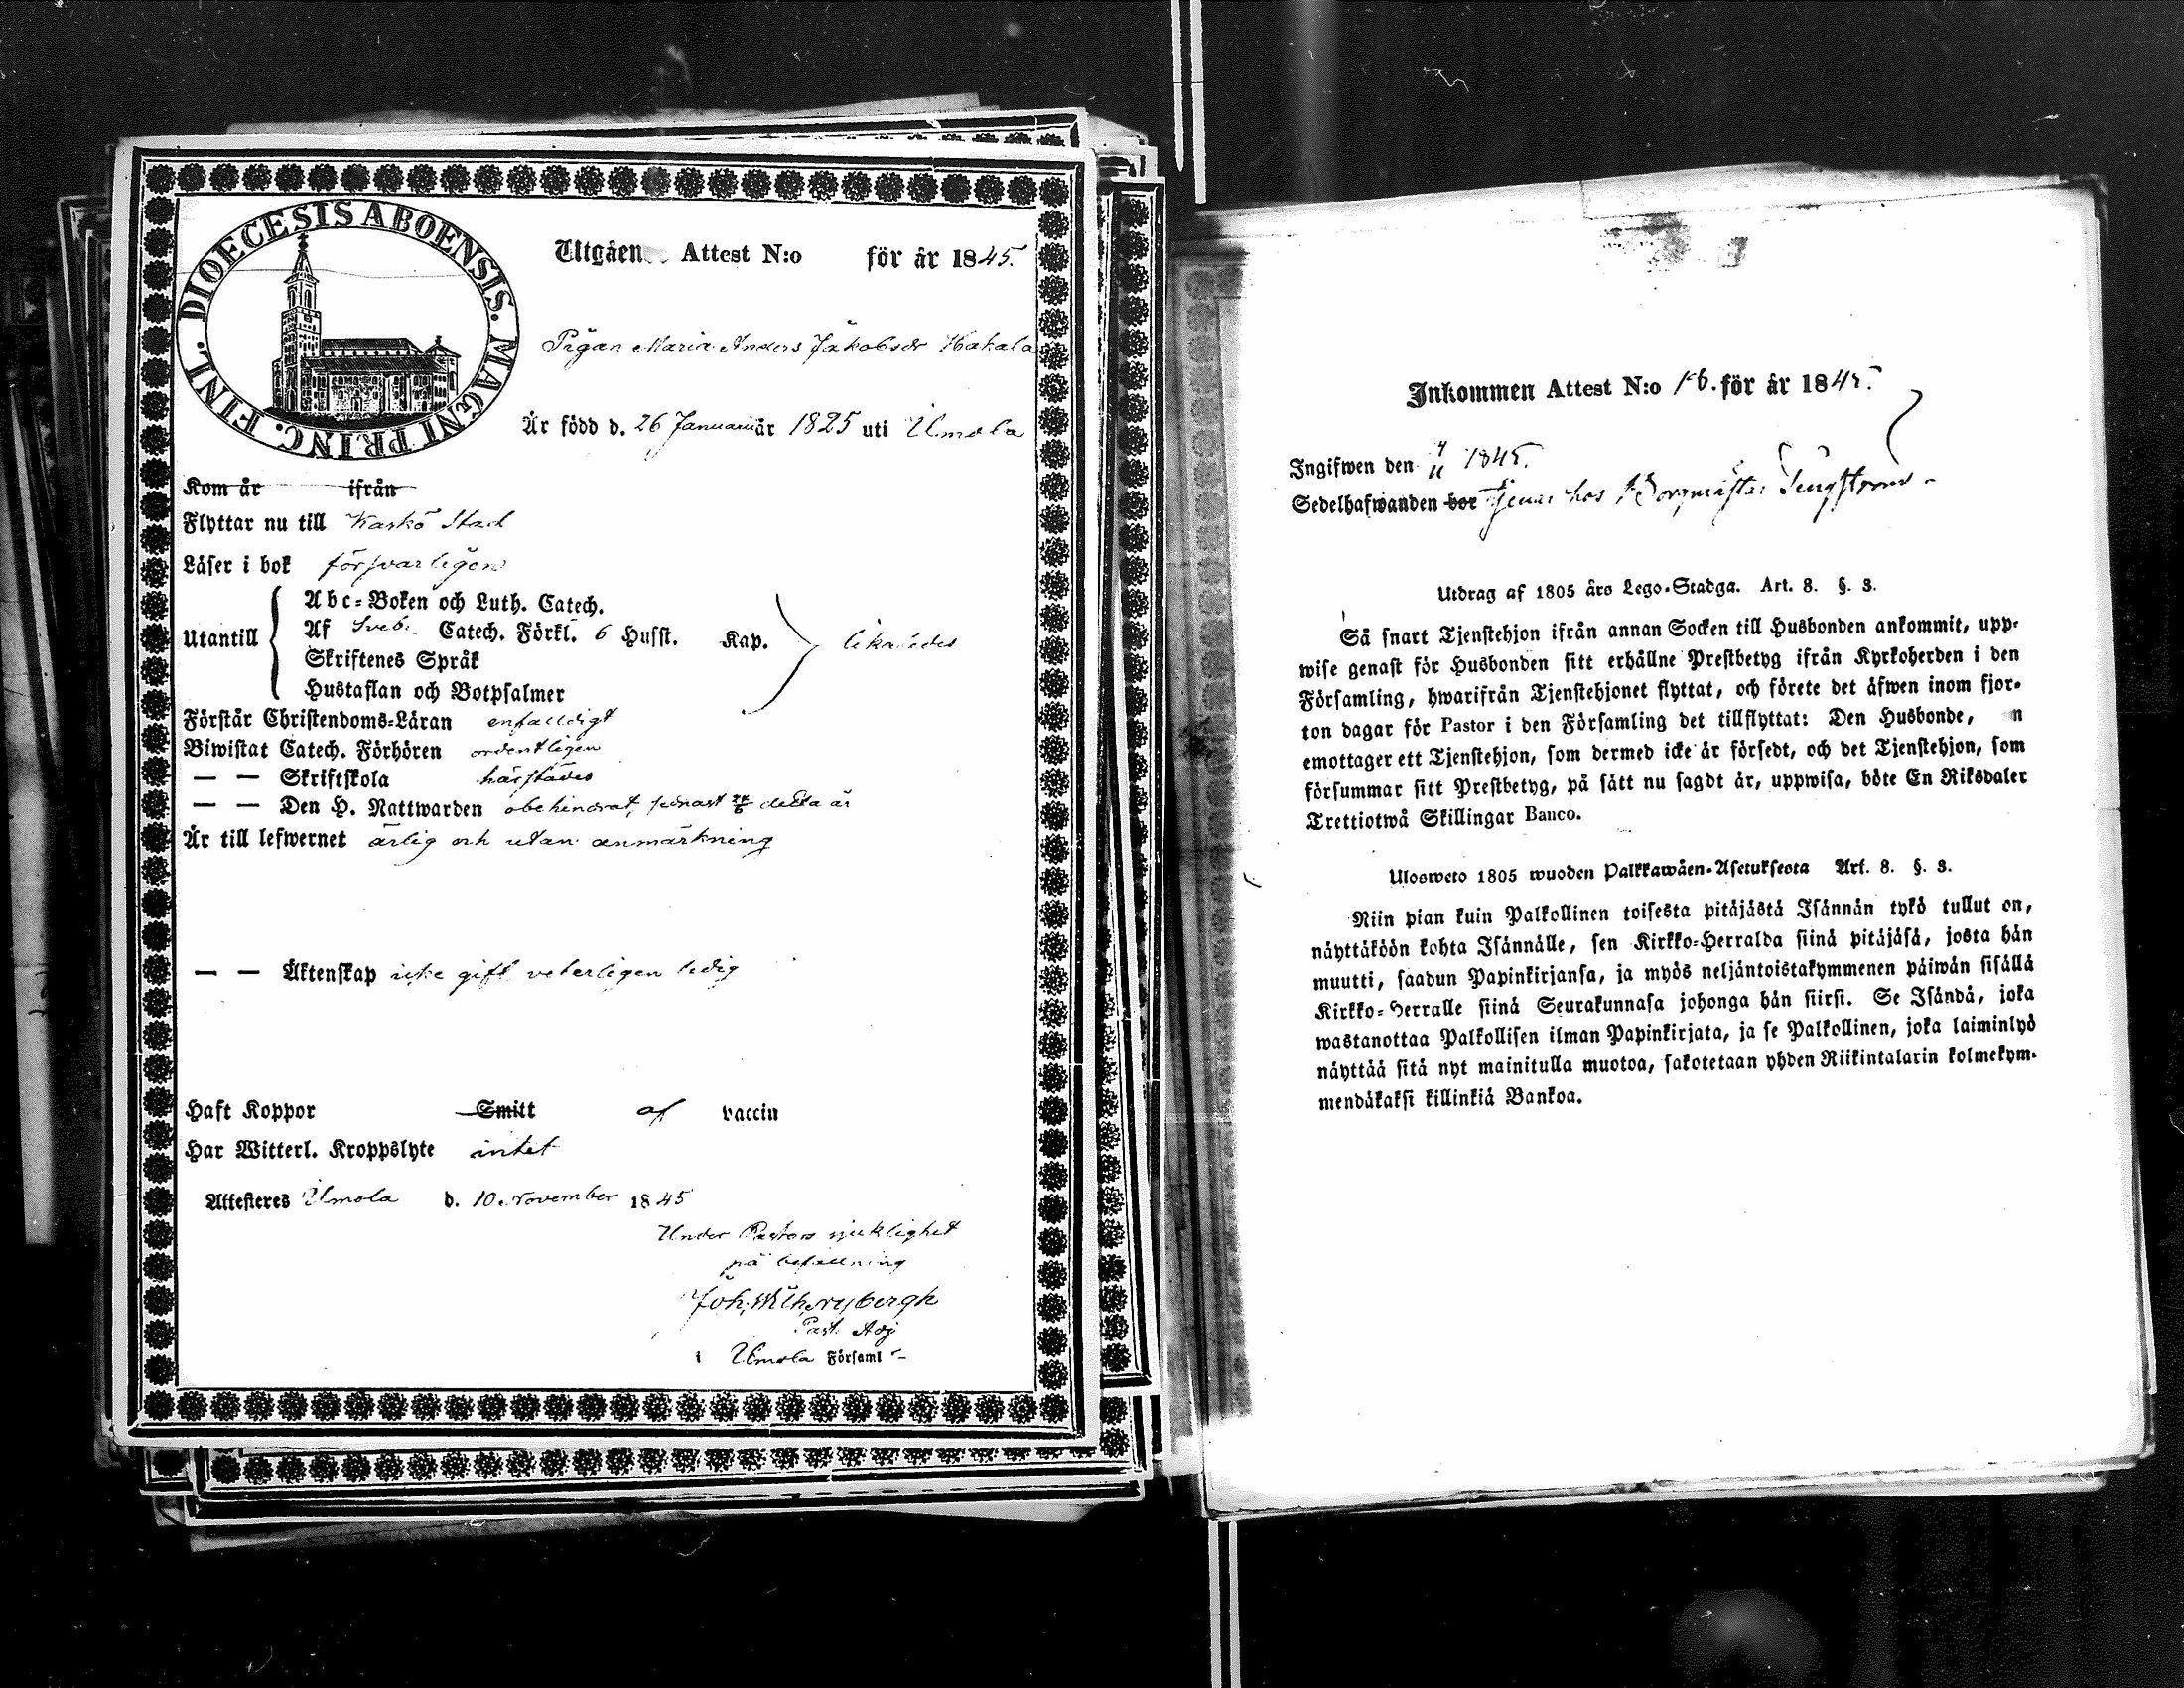 DIOECESIS ABOENSIS. MAGNI PRINC. FINL.
Utgåen Attest N:o för år 1845.
Pigan Maria Anders Jakobsdr Hakala
Är född d. 26 Januarii år 1825 uti Ilmola
Kom år ifrån
Flyttar nu till Kaskö Stad
Läser i bok försvarligen
Utantill
Abc-Boken och Luth. Catech.
Af Sveb. Catech. Förkl. 6 Husst. Kap. likaledes
Skriftenes Språk
Hustaflan och Botpsalmer
Förstår Christendoms-Läran enfaldigt
Biwistat Catech. Förhören ordentligen
— — Skriftskola härstädes
— — Den H. Nattwarden obehindrat, senast detta år
Är till lefwernet ärlig och utan anmärkning
— — Äktenskap icke gift veterligen ledig
Haft Koppor Smitt af vaccin
Har Witterl. Kroppslyte intet
Attesteres Ilmola d. 10 November 1845
Under Pastors sjuklighet
på befallning
Joh:
Past. Adj
i Ilmola Församl
Inkommen Attest N:o för år 1845.
Ingifwen den 1845.
Sedelhafwanden bor tjenar hos
Utdrag af 1805 års Lego-Stadga. Art. 8. §. 3.
Så snart Tjenstehjon ifrån annan Socken till Husbonden ankommit, upp-
wise genast för Husbonden sitt erhållne Prestbetyg ifrån Kyrkoherden i den
Församling, hwarifrån Tjenstehjonet flyttat, och förete det äfwen inom fjor-
ton dagar för Pastor i den Församling det tillflyttat: Den Husbonde, n
emottager ett Tjenstehjon, som dermed icke är försedt, och det Tjenstehjon, som
försummar sitt Prestbetyg, på sätt nu sagdt är, uppwisa, böte En Riksdaler
Trettiotwå Skillingar Banco.
Ulosweto 1805 wuoden Palkkawäen-Asetuksesta Art. 8. §. 3.
Niin pian kuin Palkollinen toisesta pitäjästä Isännän tykö tullut on,
näyttäköön kohta Isännälle, sen Kirkko-Herralda siinä pitäjäsä, josta hän
muutti, saadun Papinkirjansa, ja myös neljäntoistakymmenen päiwän sisällä
Kirkko-Herralle siinä Seurakunnasa johonga hän siirsi. Se Isändä, joka
wastanottaa Palkollisen ilman Papinkirjata, ja se Palkollinen, joka laiminlyö
näyttää sitä nyt mainitulla muotoa, sakotetaan yhden Riikintalarin kolmekym-
mendäkaksi killinkiä Bankoa.